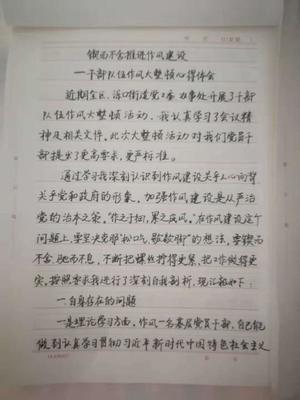 锲而不舍推进作风建设
——干部队伍作风大整顿心得体会
近期全区、洛口街道党工委办事处开展了干部
队伍作风大整顿活动，我认真学习了会议精
神及相关文件。此次大整顿活动对我们党员干
部提出了更高要求，更严标准。
通过学习我深刻认识到作风建设关乎人心向背
关乎党和政府的形象。加强作风建设是从严治
党的治本之策，"作之于细，累之成风。"在作风建设这个
问题上，要坚决克服"松口气，歇歇脚"的想法，要锲而
不舍、驰而不息，不断把螺丝拧得更紧，把工作做得更
实，按照要求我进行了深刻自我剖析，现汇报如下：
一、自身存在的问题
一是理论学习方面，作为一名基层党员干部，自己能
做到认真学习贯彻习近平新时代中国特色社会主义